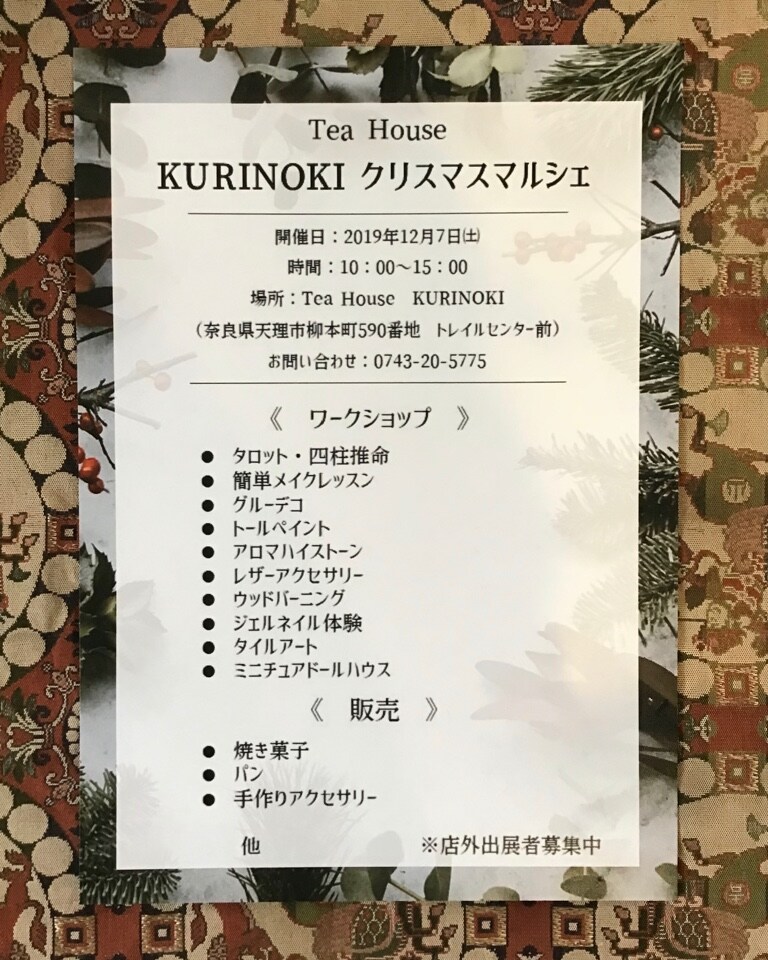 Tea House
KURINOKI クリスマスマルシェ
開催日：2019年12月7日㈯
時間：10：00～15：00
場所：Tea House　KURINOKI
（奈良県天理市柳本町590番地　トレイルセンター前）
お問い合わせ：0743-20-5775
《　ワークショップ　》
● タロット・四柱推命
● 簡単メイクレッスン
● グルーデコ
● トールペイント
● アロマハイストーン
● レザーアクセサリー
● ウッドバーニング
● ジェルネイル体験
● タイルアート
● ミニチュアドールハウス
《　販売　》
● 焼き菓子
● パン
● 手作りアクセサリー
他　※店外出展者募集中